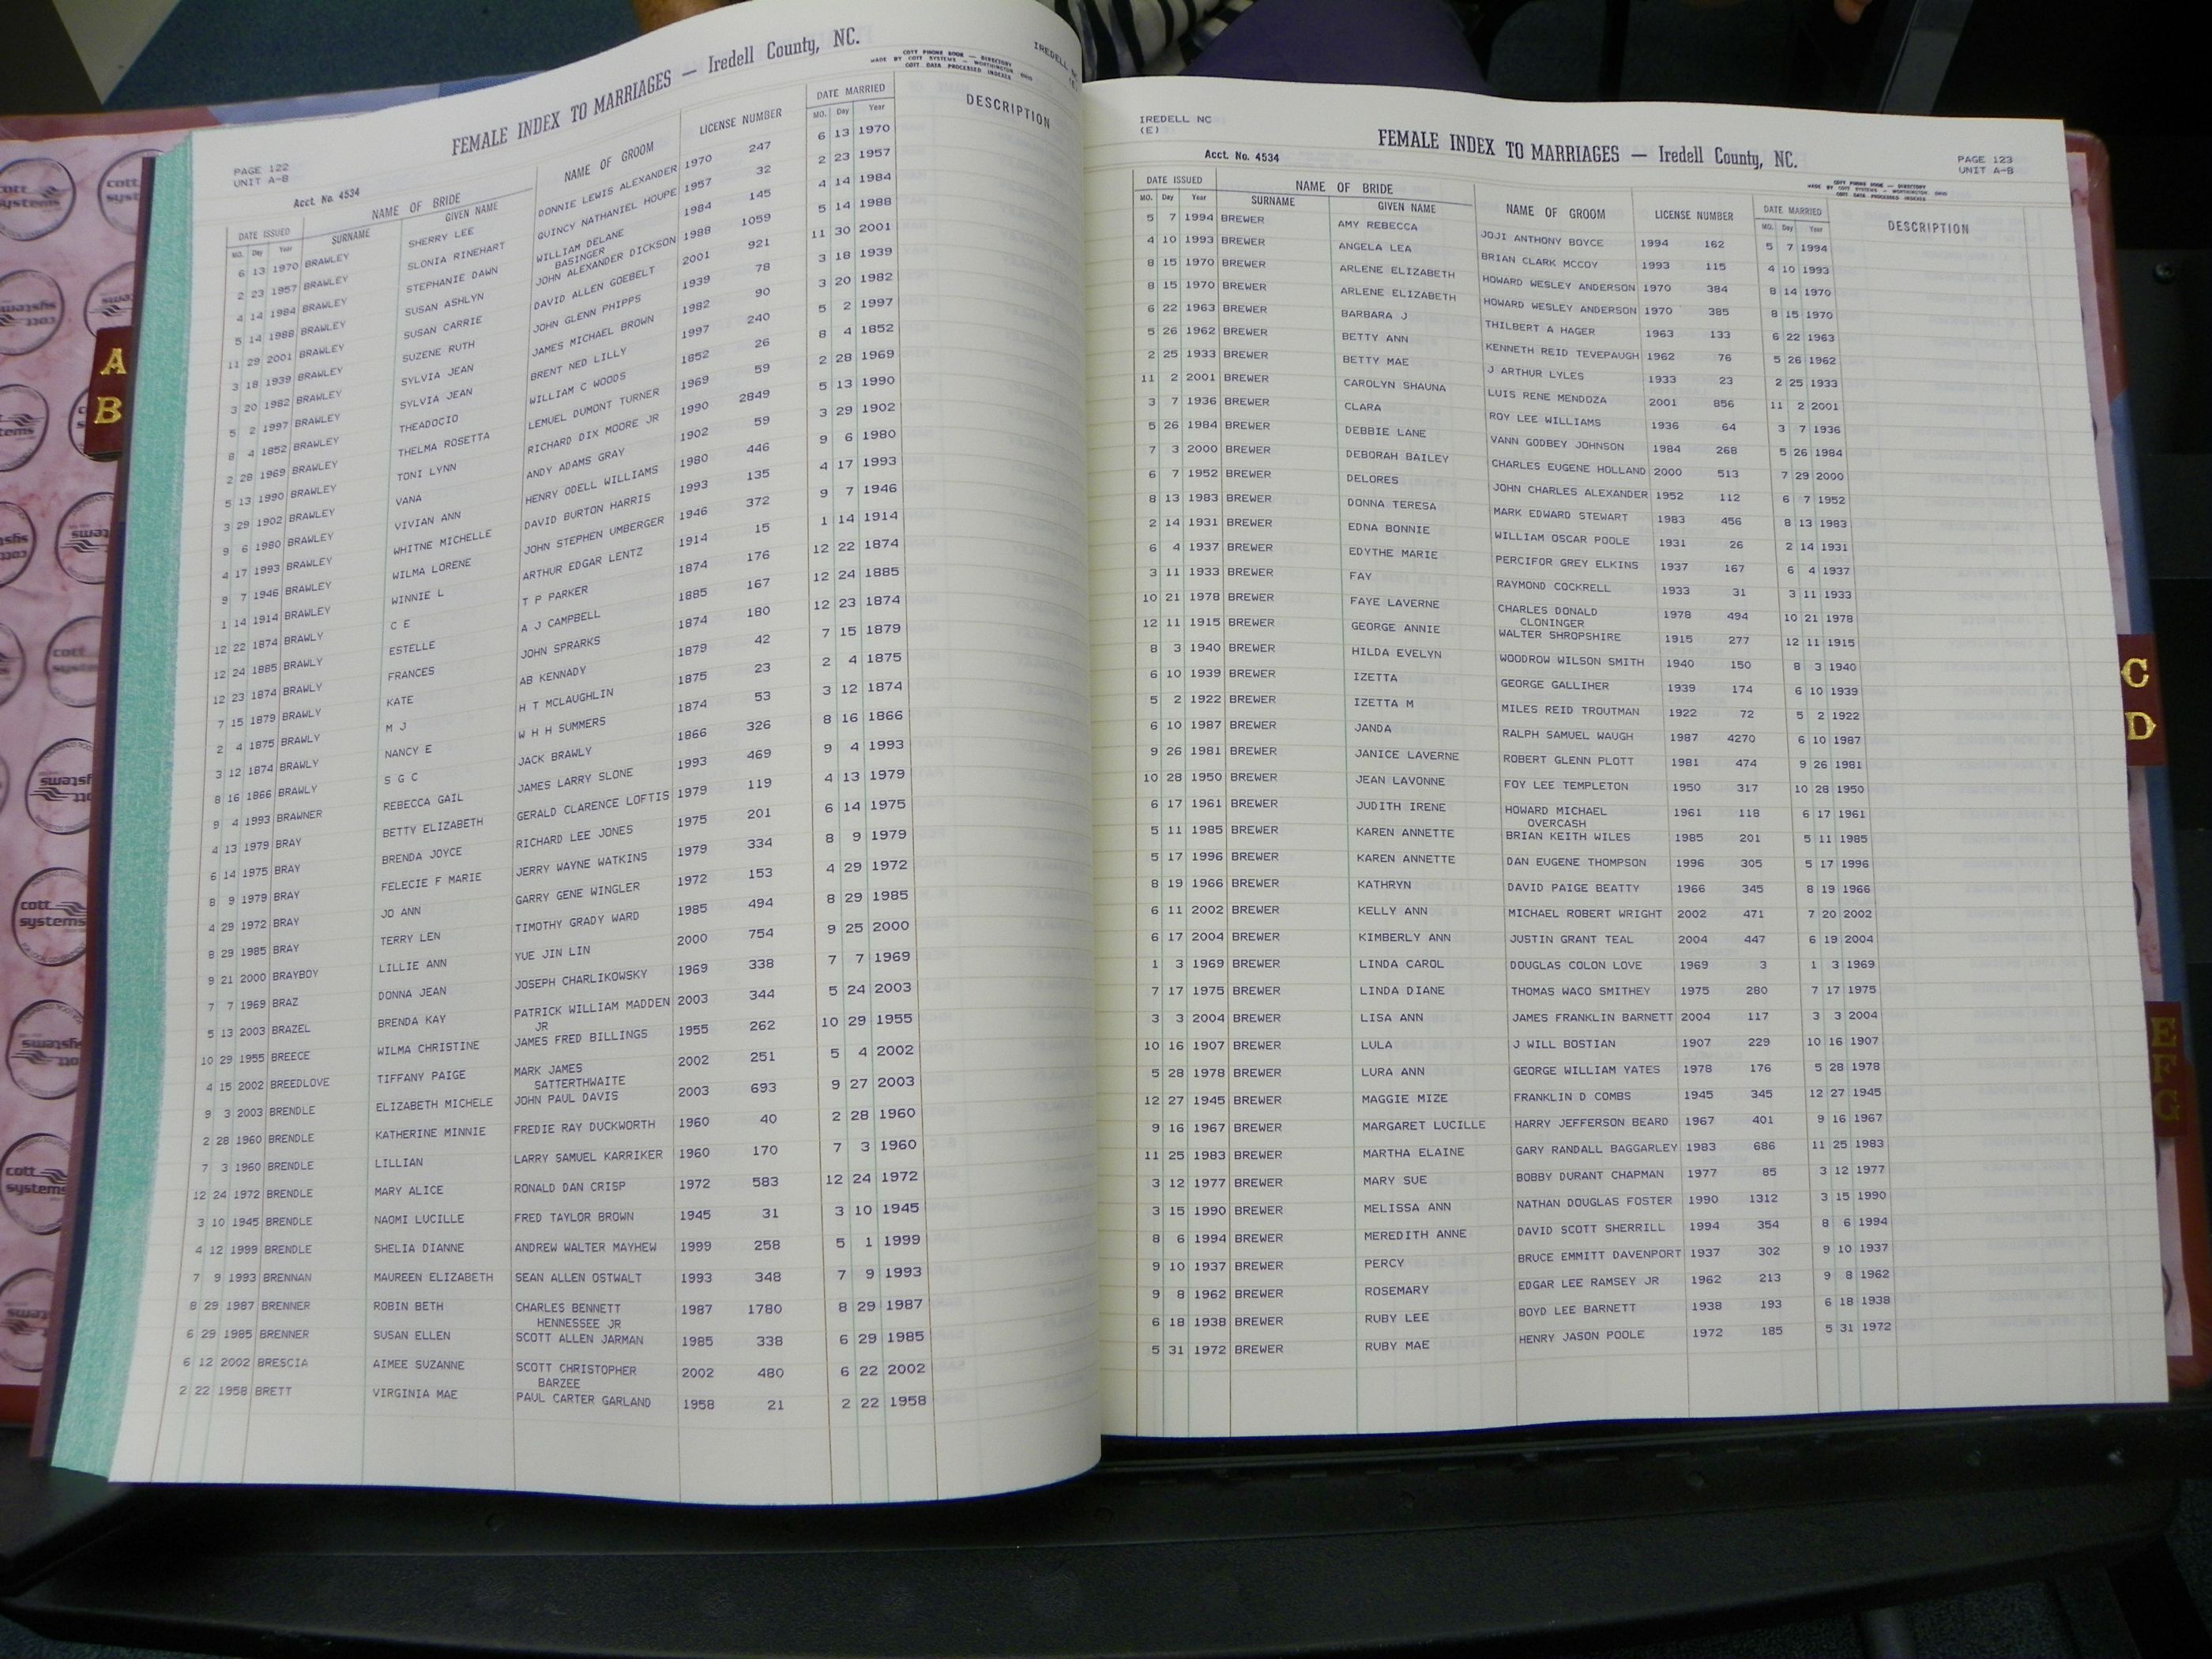 PAGE 122
UNIT A-B
FEMALE INDEX TO MARRIAGES — Iredell County, NC.
COTT PHONE BOOK — DIRECTORY
MADE BY COTT SYSTEMS — WORTHINGTON OHIO
COTT DATA PROCESSED INDEXES
Acct. No. 4534
DATE ISSUED NAME OF BRIDE NAME OF GROOM LICENSE NUMBER DATE MARRIED DESCRIPTION
MO. Day Year SURNAME GIVEN NAME MO. Day Year
6 13 1970 BRAWLEY SHERRY LEE DONNIE LEWIS ALEXANDER 1970 247 6 13 1970
2 23 1957 BRAWLEY SLONIA RINEHART QUINCY NATHANIEL HOUPE 1957 32 2 23 1957
4 14 1984 BRAWLEY STEPHANIE DAWN WILLIAM DELANE 1984 145 4 14 1984
BASINGER
5 14 1988 BRAWLEY SUSAN ASHLYN JOHN ALEXANDER DICKSON 1988 1059 5 14 1988
11 29 2001 BRAWLEY SUSAN CARRIE DAVID ALLEN GOEBELT 2001 921 11 30 2001
3 18 1939 BRAWLEY SUZENE RUTH JOHN GLENN PHIPPS 1939 78 3 18 1939
3 20 1982 BRAWLEY SYLVIA JEAN JAMES MICHAEL BROWN 1982 90 3 20 1982
5 2 1997 BRAWLEY SYLVIA JEAN BRENT NED LILLY 1997 240 5 2 1997
8 4 1852 BRAWLEY THEADOCIO WILLIAM C WOODS 1852 26 8 4 1852
2 28 1969 BRAWLEY THELMA ROSETTA LEMUEL DUMONT TURNER 1969 59 2 28 1969
5 13 1990 BRAWLEY TONI LYNN RICHARD DIX MOORE JR 1990 2849 5 13 1990
3 29 1902 BRAWLEY VANA ANDY ADAMS GRAY 1902 59 3 29 1902
9 6 1980 BRAWLEY VIVIAN ANN HENRY ODELL WILLIAMS 1980 446 9 6 1980
4 17 1993 BRAWLEY WHITNE MICHELLE DAVID BURTON HARRIS 1993 135 4 17 1993
9 7 1946 BRAWLEY WILMA LORENE JOHN STEPHEN UMBERGER 1946 372 9 7 1946
1 14 1914 BRAWLEY WINNIE L ARTHUR EDGAR LENTZ 1914 15 1 14 1914
12 22 1874 BRAWLY C E T P PARKER 1874 176 12 22 1874
12 24 1885 BRAWLY ESTELLE A J CAMPBELL 1885 167 12 24 1885
12 23 1874 BRAWLY FRANCES JOHN SPARKS 1874 180 12 23 1874
7 15 1879 BRAWLY KATE AB KENNADY 1879 42 7 15 1879
2 4 1875 BRAWLY M J H T MCLAUGHLIN 1875 23 2 4 1875
3 12 1874 BRAWLY NANCY E W H H SUMMERS 1874 53 3 12 1874
8 16 1866 BRAWLY S G C JACK BRAWLY 1866 326 8 16 1866
9 4 1993 BRAWNER REBECCA GAIL JAMES LARRY SLONE 1993 469 9 4 1993
4 13 1979 BRAY BETTY ELIZABETH GERALD CLARENCE LOFTIS 1979 119 4 13 1979
6 14 1975 BRAY BRENDA JOYCE RICHARD LEE JONES 1975 201 6 14 1975
8 9 1979 BRAY FELECIE F MARIE JERRY WAYNE WATKINS 1979 334 8 9 1979
4 29 1972 BRAY JO ANN GARRY GENE WINGLER 1972 153 4 29 1972
8 29 1985 BRAY TERRY LEN TIMOTHY GRADY WARD 1985 494 8 29 1985
9 21 2000 BRAYBOY LILLIE ANN YUE JIN LIN 2000 754 9 25 2000
7 7 1969 BRAZ DONNA JEAN JOSEPH CHARLIKOWSKY 1969 338 7 7 1969
5 13 2003 BRAZEL BRENDA KAY PATRICK WILLIAM MADDEN 2003 344 5 24 2003
JR
10 29 1955 BREECE WILMA CHRISTINE JAMES FRED BILLINGS 1955 262 10 29 1955
4 15 2002 BREEDLOVE TIFFANY PAIGE MARK JAMES 2002 251 5 4 2002
SATTERTHWAITE
9 3 2003 BRENDLE ELIZABETH MICHELE JOHN PAUL DAVIS 2003 693 9 27 2003
2 28 1960 BRENDLE KATHERINE MINNIE FREDIE RAY DUCKWORTH 1960 40 2 28 1960
7 3 1960 BRENDLE LILLIAN LARRY SAMUEL KARRIKER 1960 170 7 3 1960
12 24 1972 BRENDLE MARY ALICE RONALD DAN CRISP 1972 583 12 24 1972
3 10 1945 BRENDLE NAOMI LUCILLE FRED TAYLOR BROWN 1945 31 3 10 1945
4 12 1999 BRENDLE SHELIA DIANNE ANDREW WALTER MAYHEW 1999 258 5 1 1999
7 9 1993 BRENNAN MAUREEN ELIZABETH SEAN ALLEN OSTWALT 1993 348 7 9 1993
8 29 1987 BRENNER ROBIN BETH CHARLES BENNETT 1987 1780 8 29 1987
HENNESSEE JR
6 29 1985 BRENNER SUSAN ELLEN SCOTT ALLEN JARMAN 1985 338 6 29 1985
6 12 2002 BRESCIA AIMEE SUZANNE SCOTT CHRISTOPHER 2002 480 6 22 2002
BARZEE
2 22 1958 BRETT VIRGINIA MAE PAUL CARTER GARLAND 1958 21 2 22 1958
IREDELL NC
(E)
FEMALE INDEX TO MARRIAGES — Iredell County, NC.
PAGE 123
UNIT A-B
Acct. No. 4534
COTT PHONE BOOK — DIRECTORY
MADE BY COTT SYSTEMS — WORTHINGTON OHIO
COTT DATA PROCESSED INDEXES
DATE ISSUED NAME OF BRIDE NAME OF GROOM LICENSE NUMBER DATE MARRIED DESCRIPTION
MO. Day Year SURNAME GIVEN NAME MO. Day Year
5 7 1994 BREWER AMY REBECCA JOJI ANTHONY BOYCE 1994 162 5 7 1994
4 10 1993 BREWER ANGELA LEA BRIAN CLARK MCCOY 1993 115 4 10 1993
8 15 1970 BREWER ARLENE ELIZABETH HOWARD WESLEY ANDERSON 1970 384 8 14 1970
8 15 1970 BREWER ARLENE ELIZABETH HOWARD WESLEY ANDERSON 1970 385 8 15 1970
6 22 1963 BREWER BARBARA J THILBERT A HAGER 1963 133 6 22 1963
5 26 1962 BREWER BETTY ANN KENNETH REID TEVEPAUGH 1962 76 5 26 1962
2 25 1933 BREWER BETTY MAE J ARTHUR LYLES 1933 23 2 25 1933
11 2 2001 BREWER CAROLYN SHAUNA LUIS RENE MENDOZA 2001 856 11 2 2001
3 7 1936 BREWER CLARA ROY LEE WILLIAMS 1936 64 3 7 1936
5 26 1984 BREWER DEBBIE LANE VANN GODBEY JOHNSON 1984 268 5 26 1984
7 3 2000 BREWER DEBORAH BAILEY CHARLES EUGENE HOLLAND 2000 513 7 29 2000
6 7 1952 BREWER DELORES JOHN CHARLES ALEXANDER 1952 112 6 7 1952
8 13 1983 BREWER DONNA TERESA MARK EDWARD STEWART 1983 456 8 13 1983
2 14 1931 BREWER EDNA BONNIE WILLIAM OSCAR POOLE 1931 26 2 14 1931
6 4 1937 BREWER EDYTHE MARIE PERCIFOR GREY ELKINS 1937 167 6 4 1937
3 11 1933 BREWER FAY RAYMOND COCKRELL 1933 31 3 11 1933
10 21 1978 BREWER FAYE LAVERNE CHARLES DONALD 1978 494 10 21 1978
CLONINGER
12 11 1915 BREWER GEORGE ANNIE WALTER SHROPSHIRE 1915 277 12 11 1915
8 3 1940 BREWER HILDA EVELYN WOODROW WILSON SMITH 1940 150 8 3 1940
6 10 1939 BREWER IZETTA GEORGE GALLIHER 1939 174 6 10 1939
5 2 1922 BREWER IZETTA M MILES REID TROUTMAN 1922 72 5 2 1922
6 10 1987 BREWER JANDA RALPH SAMUEL WAUGH 1987 4270 6 10 1987
9 26 1981 BREWER JANICE LAVERNE ROBERT GLENN PLOTT 1981 474 9 26 1981
10 28 1950 BREWER JEAN LAVONNE FOY LEE TEMPLETON 1950 317 10 28 1950
6 17 1961 BREWER JUDITH IRENE HOWARD MICHAEL 1961 118 6 17 1961
OVERCASH
5 11 1985 BREWER KAREN ANNETTE BRIAN KEITH WILES 1985 201 5 11 1985
5 17 1996 BREWER KAREN ANNETTE DAN EUGENE THOMPSON 1996 305 5 17 1996
8 19 1966 BREWER KATHRYN DAVID PAIGE BEATTY 1966 345 8 19 1966
6 11 2002 BREWER KELLY ANN MICHAEL ROBERT WRIGHT 2002 471 7 20 2002
6 17 2004 BREWER KIMBERLY ANN JUSTIN GRANT TEAL 2004 447 6 19 2004
1 3 1969 BREWER LINDA CAROL DOUGLAS COLON LOVE 1969 3 1 3 1969
7 17 1975 BREWER LINDA DIANE THOMAS WACO SMITHEY 1975 280 7 17 1975
3 3 2004 BREWER LISA ANN JAMES FRANKLIN BARNETT 2004 117 3 3 2004
10 16 1907 BREWER LULA J WILL BOSTIAN 1907 229 10 16 1907
5 28 1978 BREWER LURA ANN GEORGE WILLIAM YATES 1978 176 5 28 1978
12 27 1945 BREWER MAGGIE MIZE FRANKLIN D COMBS 1945 345 12 27 1945
9 16 1967 BREWER MARGARET LUCILLE HARRY JEFFERSON BEARD 1967 401 9 16 1967
11 25 1983 BREWER MARTHA ELAINE GARY RANDALL BAGGARLEY 1983 686 11 25 1983
3 12 1977 BREWER MARY SUE BOBBY DURANT CHAPMAN 1977 85 3 12 1977
3 15 1990 BREWER MELISSA ANN NATHAN DOUGLAS FOSTER 1990 1312 3 15 1990
8 6 1994 BREWER MEREDITH ANNE DAVID SCOTT SHERRILL 1994 354 8 6 1994
9 10 1937 BREWER PERCY BRUCE EMMITT DAVENPORT 1937 302 9 10 1937
9 8 1962 BREWER ROSEMARY EDGAR LEE RAMSEY JR 1962 213 9 8 1962
6 18 1938 BREWER RUBY LEE BOYD LEE BARNETT 1938 193 6 18 1938
5 31 1972 BREWER RUBY MAE HENRY JASON POOLE 1972 185 5 31 1972
A
B
C
D
E
F
G
cott
systems